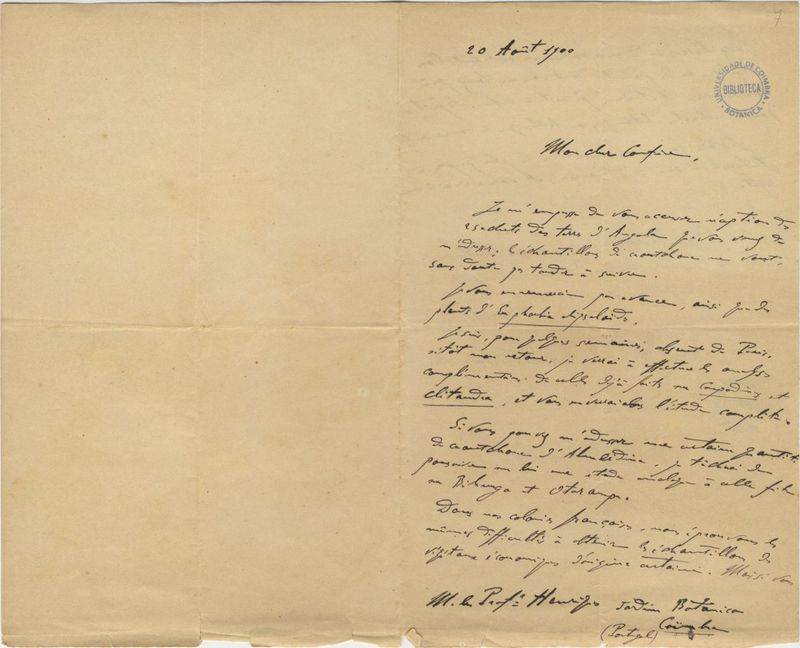 7
20 Août 1900
UNIVERSIDADE DE COIMBRA
BIBLIOTECA
BOTANICA
Mon cher Confrère,
Je m'empresse de vous accuser réception des
sachets des terres d'Angola que vous venez de
m'adresser; les échantillons de caoutchouc ne vont,
sans doute pas tarder à suivre.
Je vous en remercie par avance, ainsi que des
plants d'Euphorbia
Je suis, pour quelques semaines, absent de Paris,
sitôt mon retour, je verrai à effectuer les analyses
complémentaires de celles déjà faites sur et
Clitandra, et vous en enverrai l'étude complète.
Si vous pouvez m'adresser une certaine quantité
de caoutchouc d'Almeidina, je tâcherai de
poursuivre sur lui une étude analogue à celle faite
sur et
Dans nos colonies françaises, nous éprouvons les
mêmes difficultés à obtenir les échantillons des
végétaux économiques d'origine certaine. Mais si vous
M. le Profr Henriques Jardim Botanico
Coimbra
(Portugal)